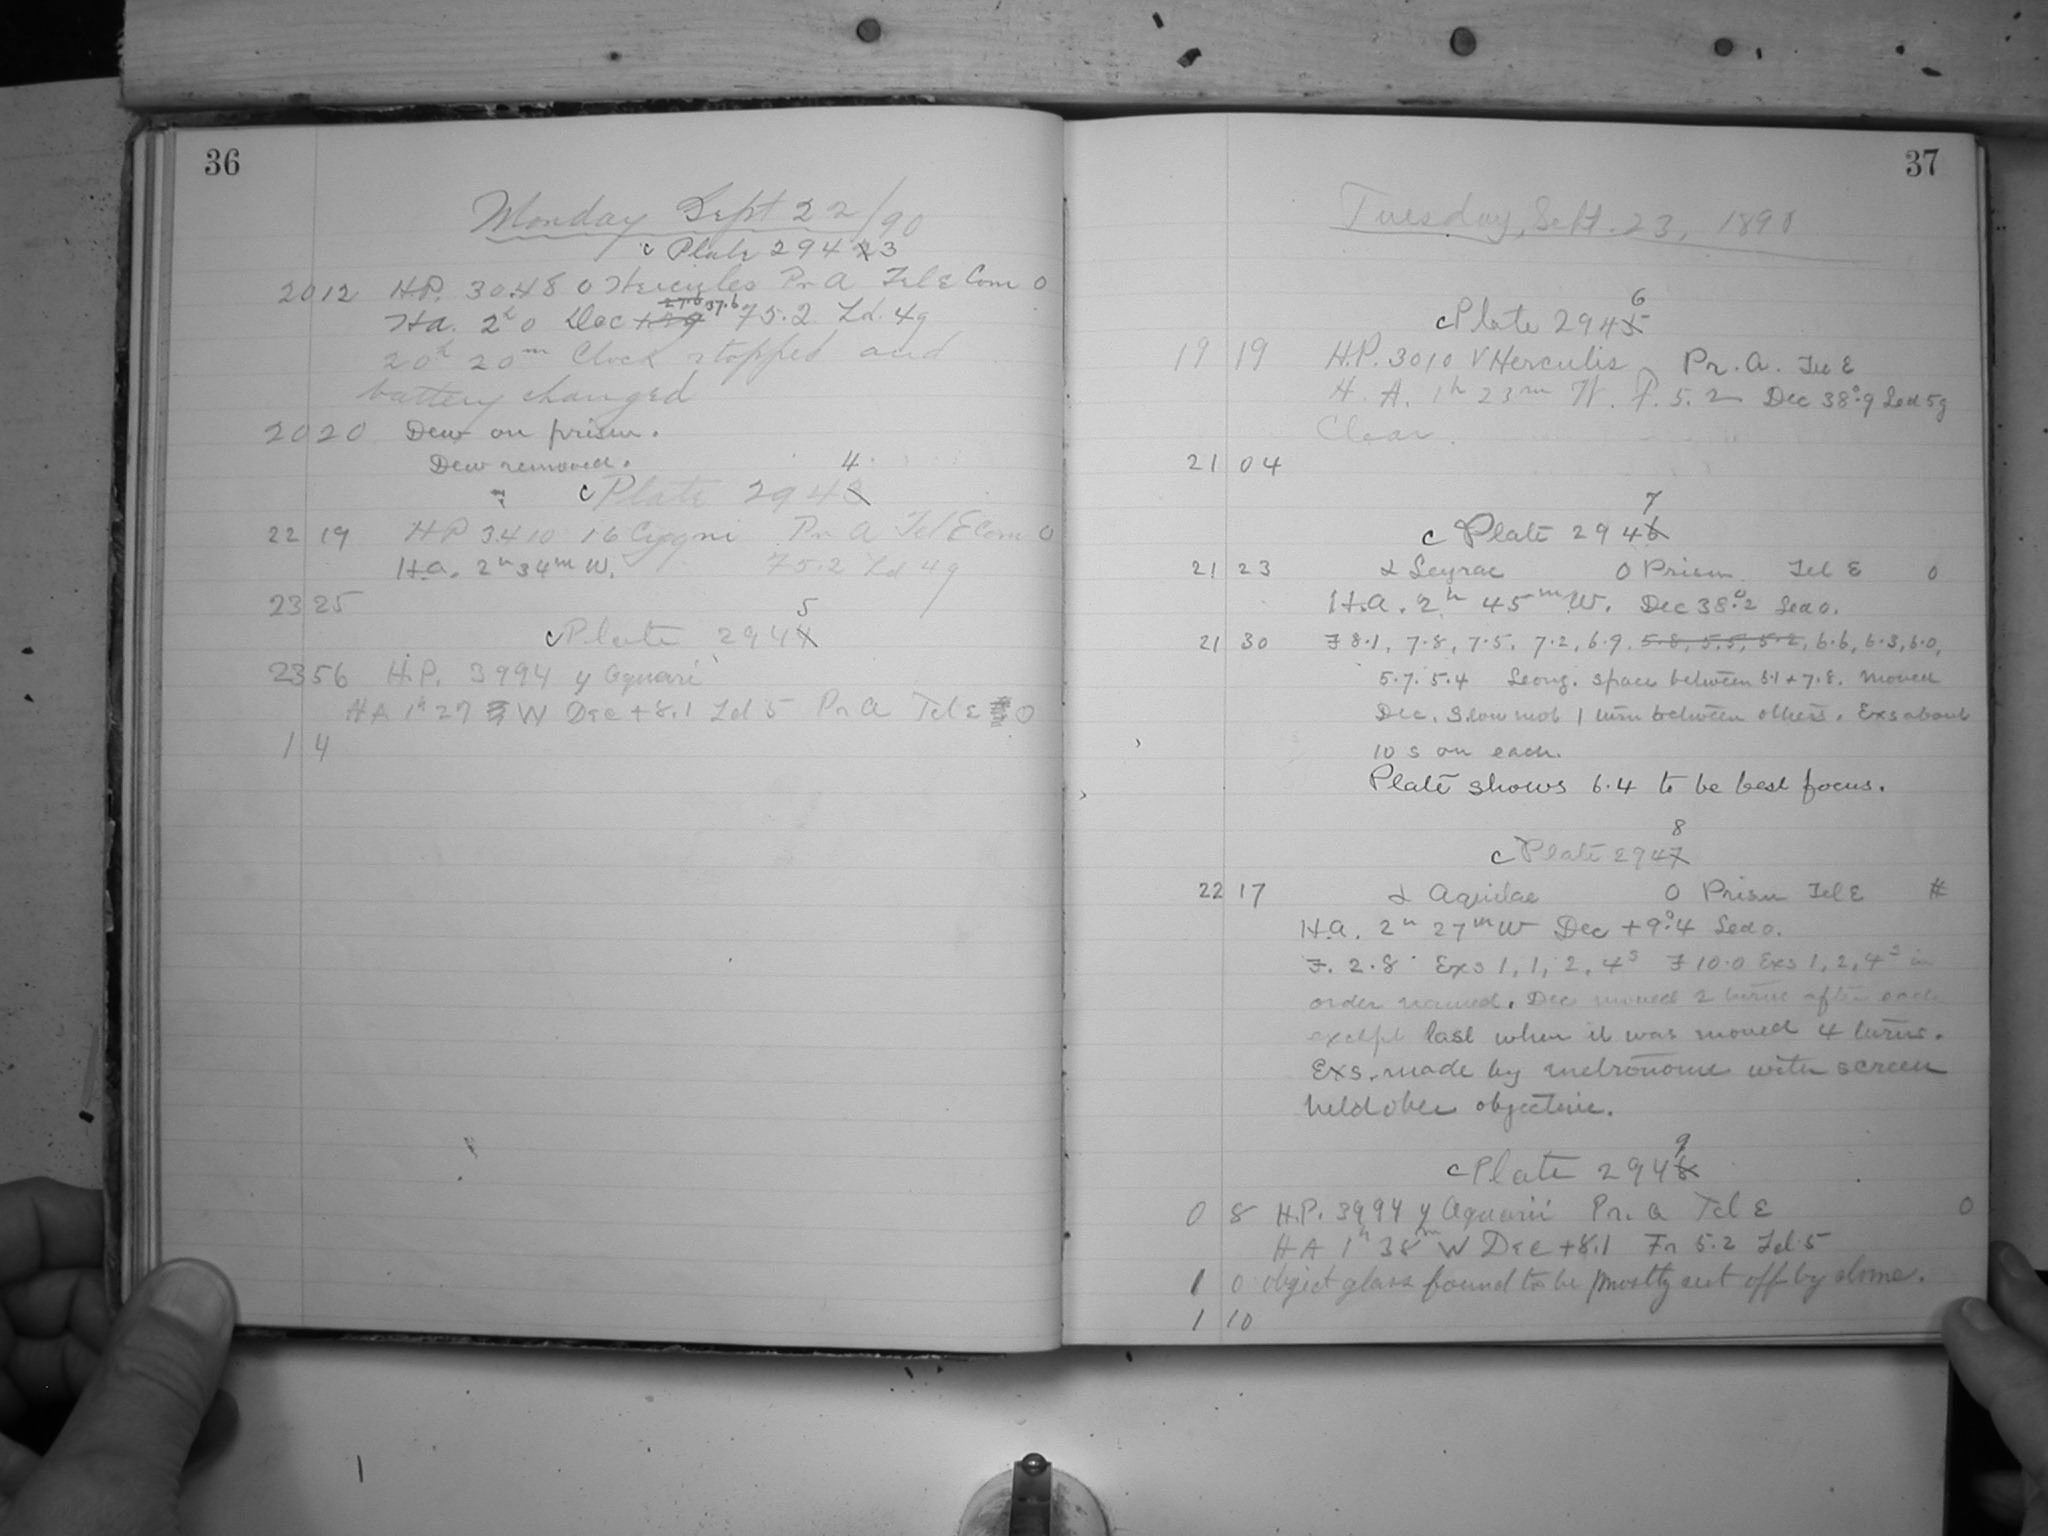 36
Monday Sept 22/90
c Plate 29423
20 12 H.P. 3048 o Hercules Pr A Tel E Com 0
Ha. 2h 0 Dec +39 27.6 37.6 F5.2 Ld. 4g
20h 20m Clock stopped and
battery changed
20 20 Dew on prism.
Dew removed.
4
c Plate 2943
22 19 HP 3410 16 Cygni Pr A Tel E Com 0
H.a. 2h 34m W. F5.2 Ld 4g
23 25
5
c Plate 2944
23 56 H.P. 3994 y Aquari
HA 1h 27 W Dec +8.1 Ld 5 Pr A Tel E 0
1 4
37
Tuesday, Sept. 23, 1890
6
c Plate 2945
19 19 H.P. 3010 V Herculis Pr. A. Tel E
H. A. 1h 23m W. F. 5.2 Dec 38°.9 Led 5g
Clear.
21 04
7
c Plate 2946
21 23 α Leyrae 0 Prism Tel E 0
H.a. 2h 45m W. Dec 38°.2 Led 0.
21 30 F 8.1, 7.8, 7.5, 7.2, 6.9, 5.8, 5.5, 5.2, 6.6, 6.3, 6.0,
5.7, 5.4 Long. space between 8.1 + 7.8. Moved
Dec. Slow mot 1 turn between others. Exs about
10 s on each.
Plate shows 6.4 to be best focus.
8
c Plate 2947
22 17 α Aquilae 0 Prism Tel E
H.a. 2h 27m W Dec +9°.4 Led 0.
F. 2.8 Exs 1, 1, 2, 4s F 10.0 Exs 1, 2, 4s in
order named. Dec moved 2 turns after each
except last when it was moved 4 turns.
Exs. made by metronome with screen
held over objective.
9
c Plate 2948
0 8 H.P. 3994 y Aquarii Pr. a Tel E 0
HA 1h 38m W Dec +8.1 Fr 5.2 Ld 5
1 0 object glass found to be mostly cut off by dome.
1 10